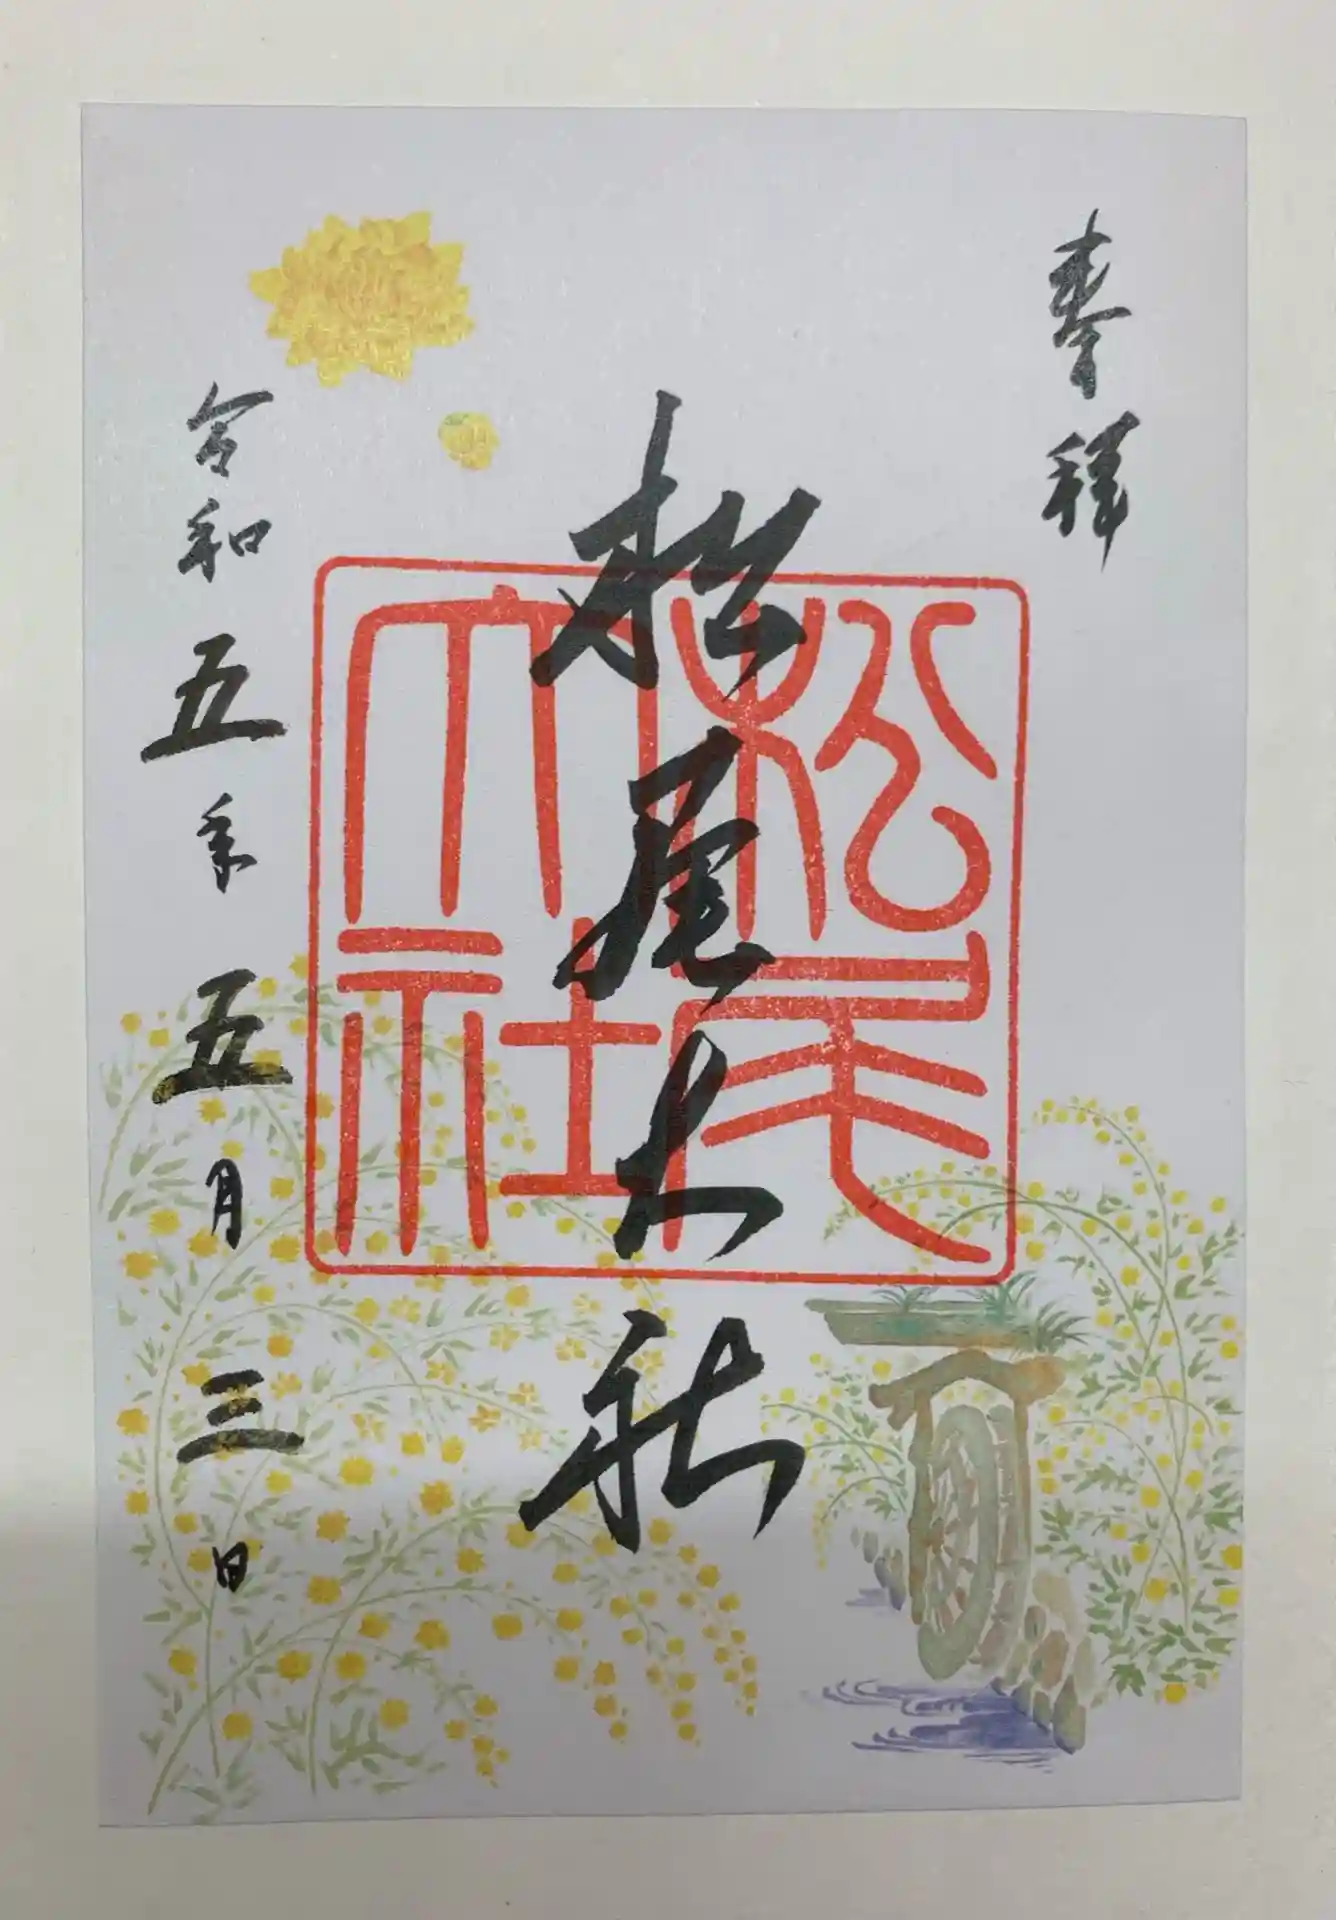 奉拝
松尾大社
松尾
大社
令和五年五月三日